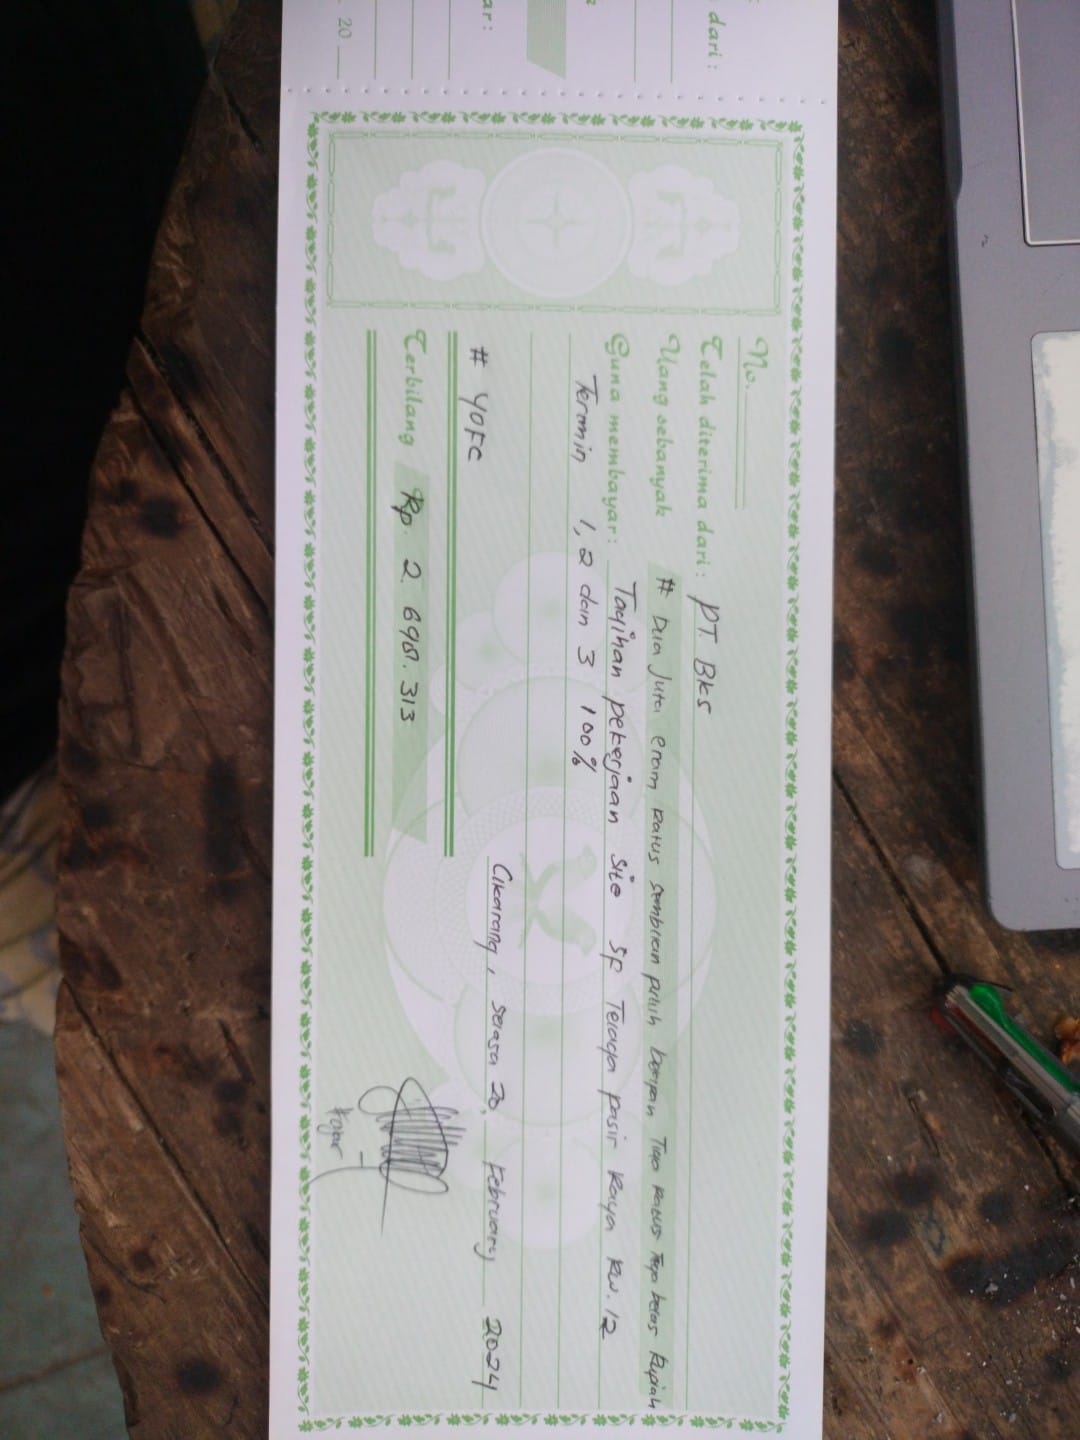 dari :
ar :
20
No.
Telah diterima dari : PT. BKS
Uang sebanyak # Dua Juta enam Ratus sembilan puluh Tiga Ratus Tiga belas Rupiah
Guna membayar : Tagihan pekerjaan site SP Telaga pasir Raya Rw. 12
Termin 1, 2 dan 3 100%
# YOFC
Cikarang, selasa 20, February 2024
Terbilang Rp. 2 698. 313